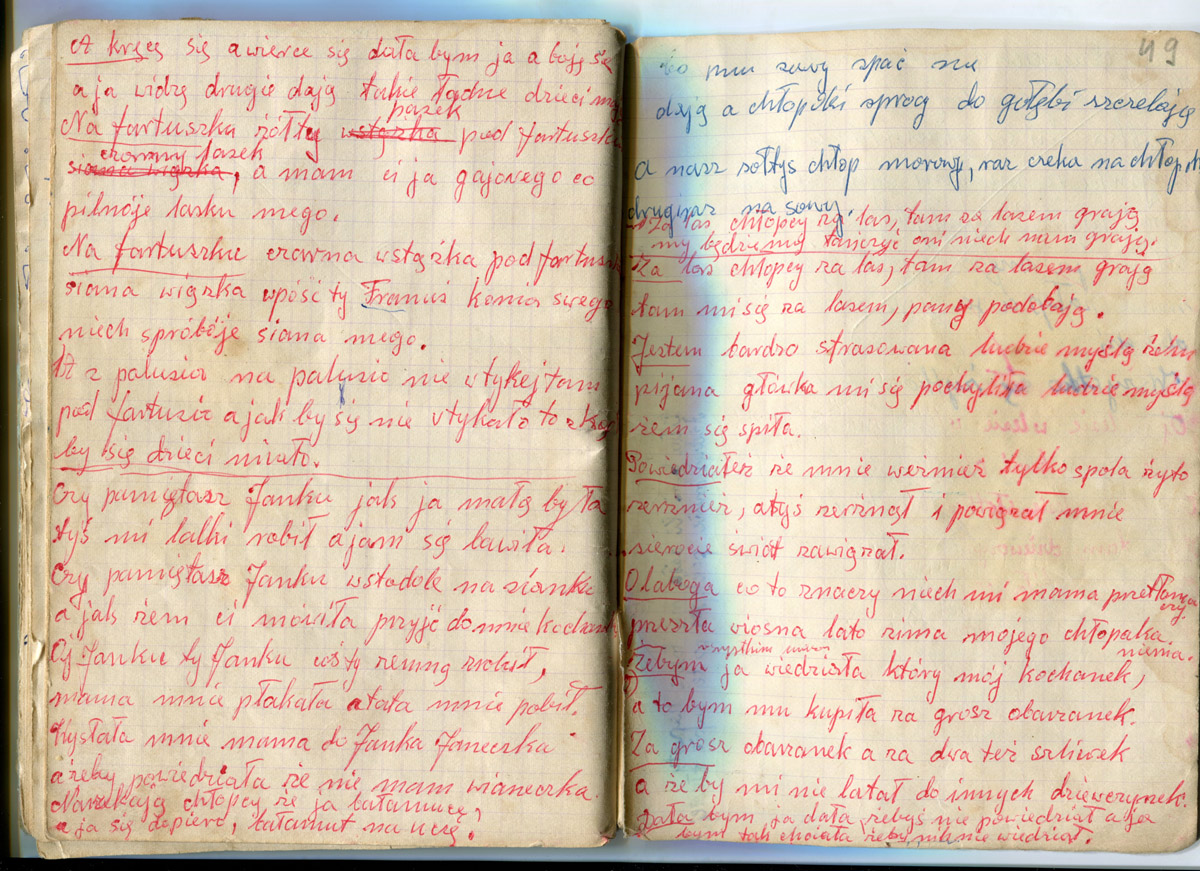 A kręcę się a wierce się dała bym ja a boję się
a ja widzę drugie dają takie ładne dzieci mają
pasek
Na fartuszka żółty wstążka pod fartuszka
czerwony lasek
siana wiązka, a mam ci ja gajowego co
pilnóje lasku mego.
Na fartuszku czerwna wstążka pod fartuszk
siana wiązka wpóść ty Franuś konia swego
niech spróbóje siana mego.
A z palusia na palusia nie wtykej tam
pod fartusia a jak by się nie vtykało to z kąd
by się dzieci miało.
Czy pamiętasz Janku jak ja małą była
tyś mi lalki robił a jam się bawiła.
Czy pamiętasz Janku wstodole na sianku
a jak żem ci mówiła przyjć do mnie kochanku
Oj Janku ty Janku coś ty zemną zrobił,
mama mnie płakała a tata mnie pobił.
Wysłała mnie mama do Janka Janeczka
ażeby powiedziała że nie mam wianeczka.
Narzekają chłopcy że ja bałamucę,
a ja się dopiero, bałamut na uczę.
49
bo mu sowy spać nie
dają a chłopóki sprog do gołębi szczelają
a nasz sołtys chłop morowy, raz czeka na chłopch
drugi raz na sowy.
Za las chłopcy za las, tam za lasem grają
my będziemy tańczyć oni niech nam grają.
Za las chłopcy za las, tam za lasem grają
tam mi się za lasem, pany podobają.
Jestem bardzo strasowana ludzie myślą żem
pijana główka mi się pochyliła ludzie myślą
żem się spiła.
Powiedziałeś że mnie weźmiesz tylko spola żyto
zerzniesz, atyś zerznął i powiązał mnie
sierocie świat zawiązał.
Olaboga co to znaczy niech mi mama przetłuma
czy
przeszła wiosna lato zima mojego chłopaka
niema.
wszystkim
Żebym ja wiedziała który mój kochanek,
a to bym mu kupiła za grosz obarzanek.
Za grosz obarzanek a za dwa też szliwek
a że by mi nie latał do innych dziewczynek.
Dała bym ja dała, żebyś nie powiedział a ja
bym tak chciała żeby nik nie wiedział.